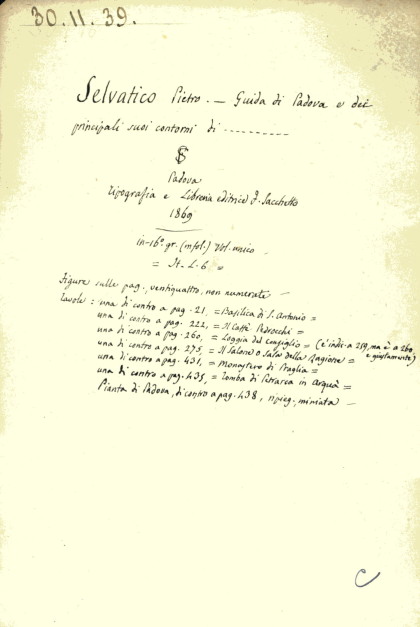 30.11.39.
Selvatico Pietro. — Guida di Padova e dei
principali suoi contorni di ----------
Padova
Tipografia e Libreria editrice F. Sacchetto
1869
in-16° gr. (mfol.) Vol. unico
= It. L. 6 =
Figure sulle pag., ventiquattro, non numerate —
Tavole : una di contro a pag. 21, = Basilica di S. Antonio =
una di contro a pag. 222, = Il Caffè Pedrocchi =
una di contro a pag. 260, = Loggia del Consiglio = (è indi. a 259, ma è a 260, e giustamente)
una di contro a pag. 275, = Il Salone o Sala della Ragione =
una di contro a pag. 431, = Monastero di Praglia =
una di contro a pag. 435, = Tomba di Petrarca in Arquà =
Pianta di Padova, di contro a pag. 438, ripieg., miniata —
C